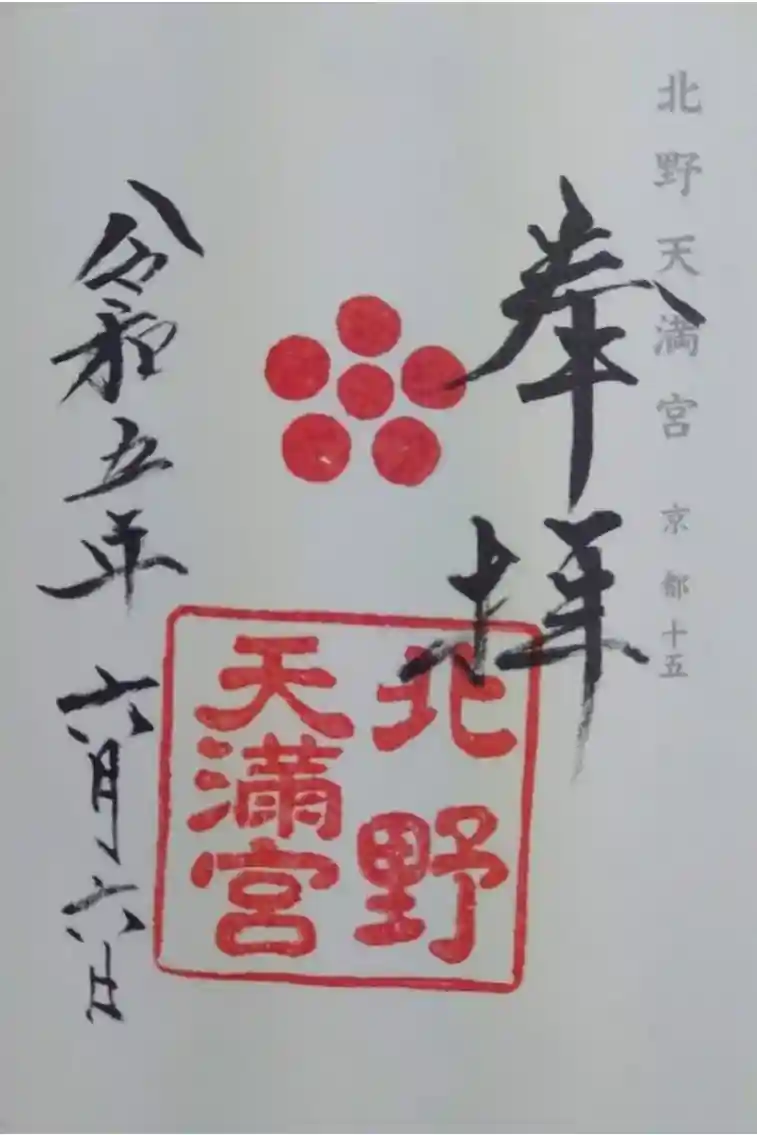 北野天満宮 京都十五
奉拝
北野
天満宮
令和五年 六月六日